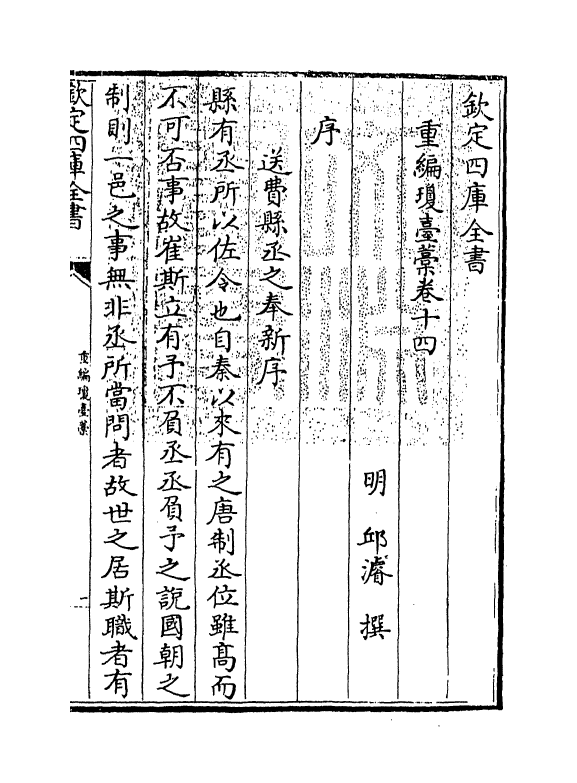 欽定四庫全書
重編瓊臺藁卷十四
明 邱濬 撰
序
送費縣丞之奉新序
縣有丞所以佐令也自秦以來有之唐制丞位雖髙而
不可否事故崔斯立有予不負丞丞負予之說國朝之
制則一邑之事無非丞所當問者故世之居斯職者有
欽定四庫全書
重編瓊臺藁
一